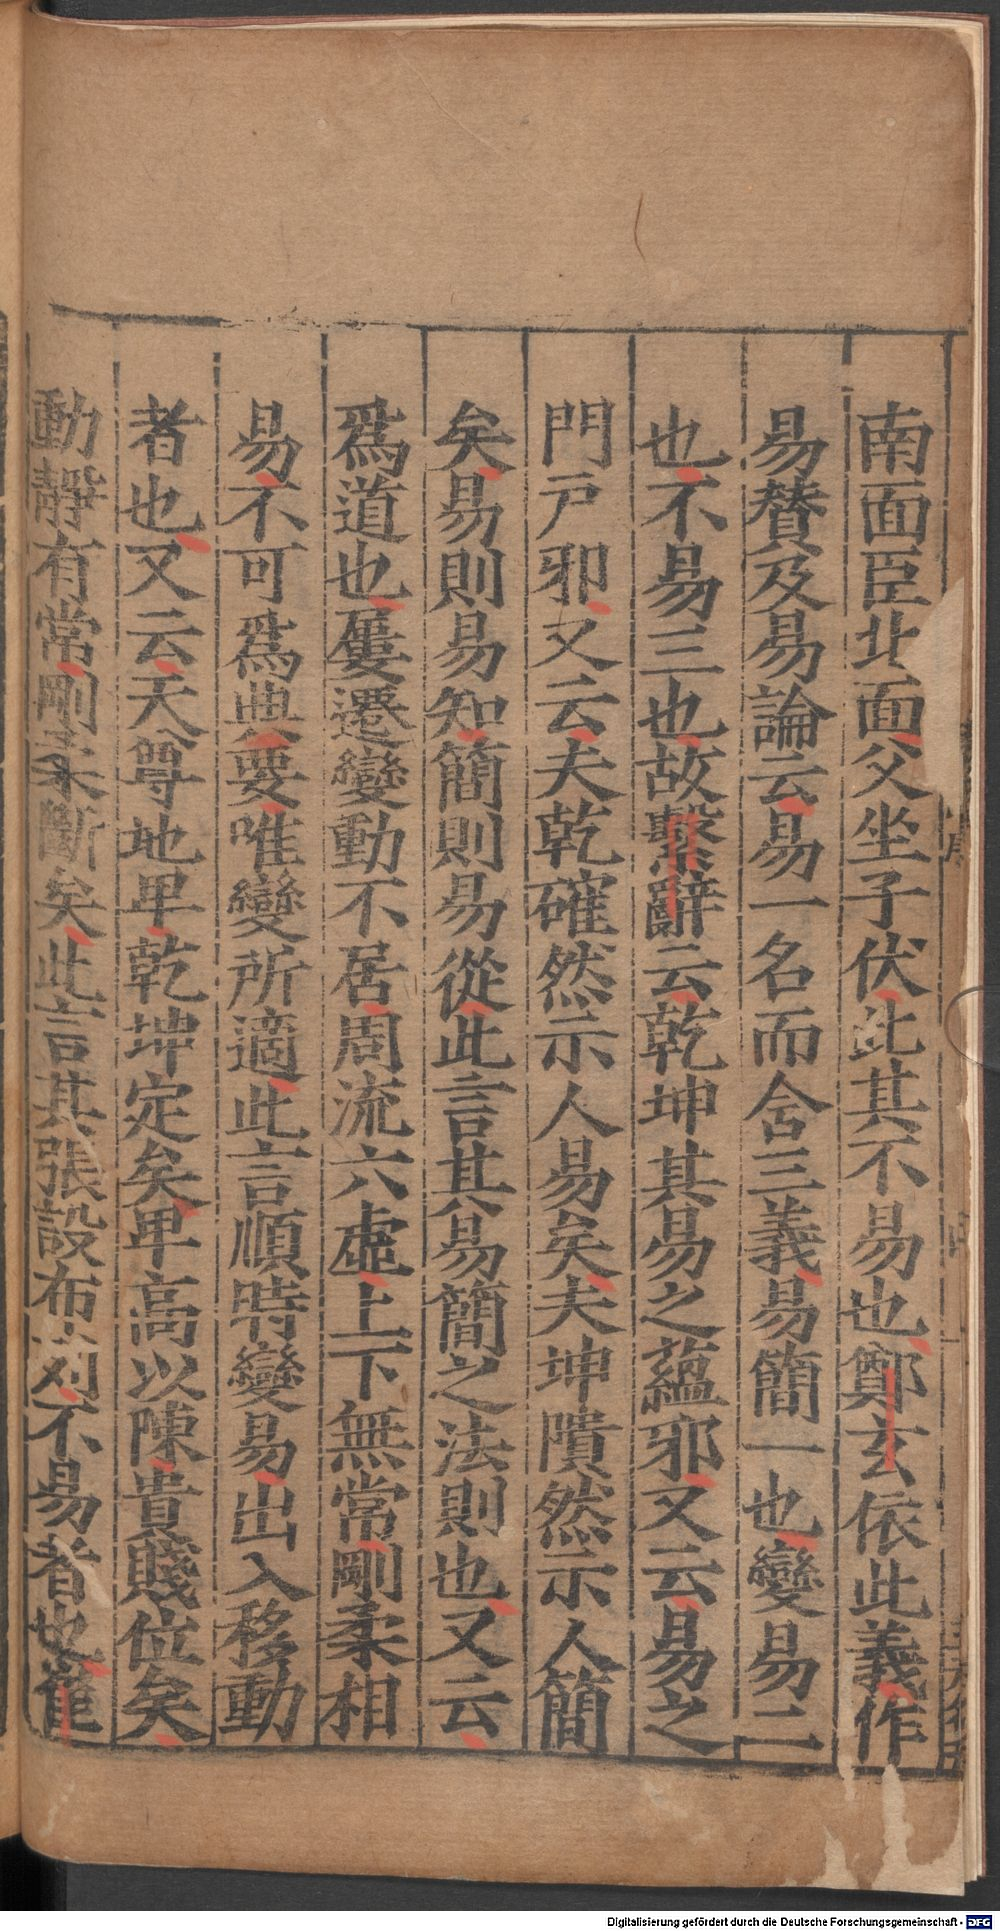 南面臣北面父坐子伏此其不易也鄭玄依此義作
易賛及易論云易一名而含三義易簡一也變易二
也不易三也故繫辭云乾坤其易之蘊邪又云易之
門戸邪又云夫乾確然示人易矣夫坤隤然示人簡
矣易則易知簡則易從此言其易簡之法則也又云
爲道也屢遷變動不居周流六虛上下無常剛柔相
易不可爲典要唯變所適此言順時變易出入移動
者也又云天尊地卑乾坤定矣卑高以陳貴賤位矣
動靜有常剛柔斷矣此言其張設布列不易者也崔
Digitalisierung gefördert durch die Deutsche Forschungsgemeinschaft - DFG